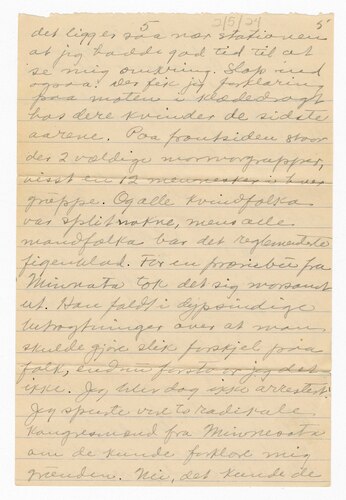 5 2/5/24 5
det ligger saa nær stationen
at jeg hadde god tid til at
se mig omkring. Slap ind
ogsaa. Der fik jeg forklaring
paa moten i klædedragt
hos dere kvinder de sidste
aarene. Paa frontsiden staar
der 2 vældige marmorgrupper,
visst en 12 mennesker i hver
gruppe. Og alle kvindfolka
var splitnakne, mens alle
mandfolka bar det reglementerte
figenblad. For en præriebu fra
Minnesota tok det sig morsomt
ut. Han faldt i dypsindige
betragtninger over at man
skulde gjøre slik forskjel paa
folk, endnu forstaar jeg det
ikke. Jeg blev dog ikke arrestert.
Jeg spurte ved to radikale
kongresmænd fra Minnesota
om de kunde forklare mig
grunden. Nei, det kunde de